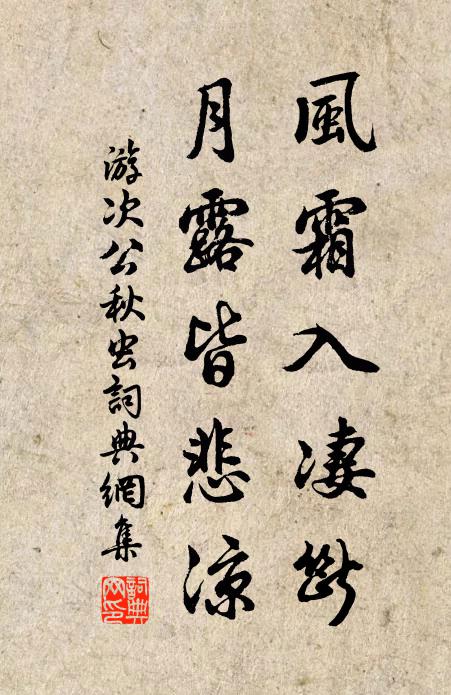 風霜入凄斷
月露皆悲涼
游次公秋虫詞典網集
詞典
网印